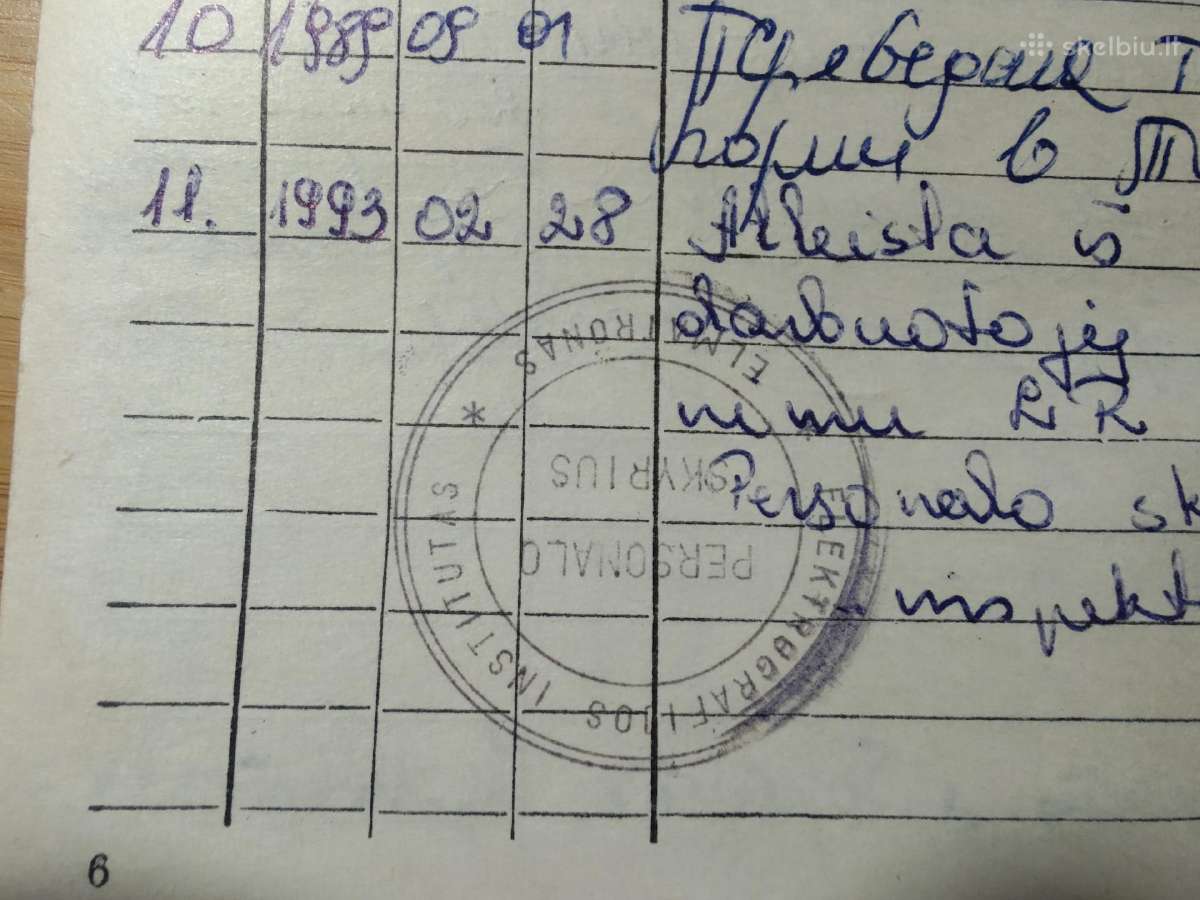 skelbiu.lt
10 1989 09 01 Переведена Т
в Т
11. 1993 02 28 Atleista iš
darbuotojų
nimu LR
Personalo sk
inspekt
ELEKTROGRAFIJOS INSTITUTAS * ELMITRONAS
PERSONALO
SKYRIUS
6